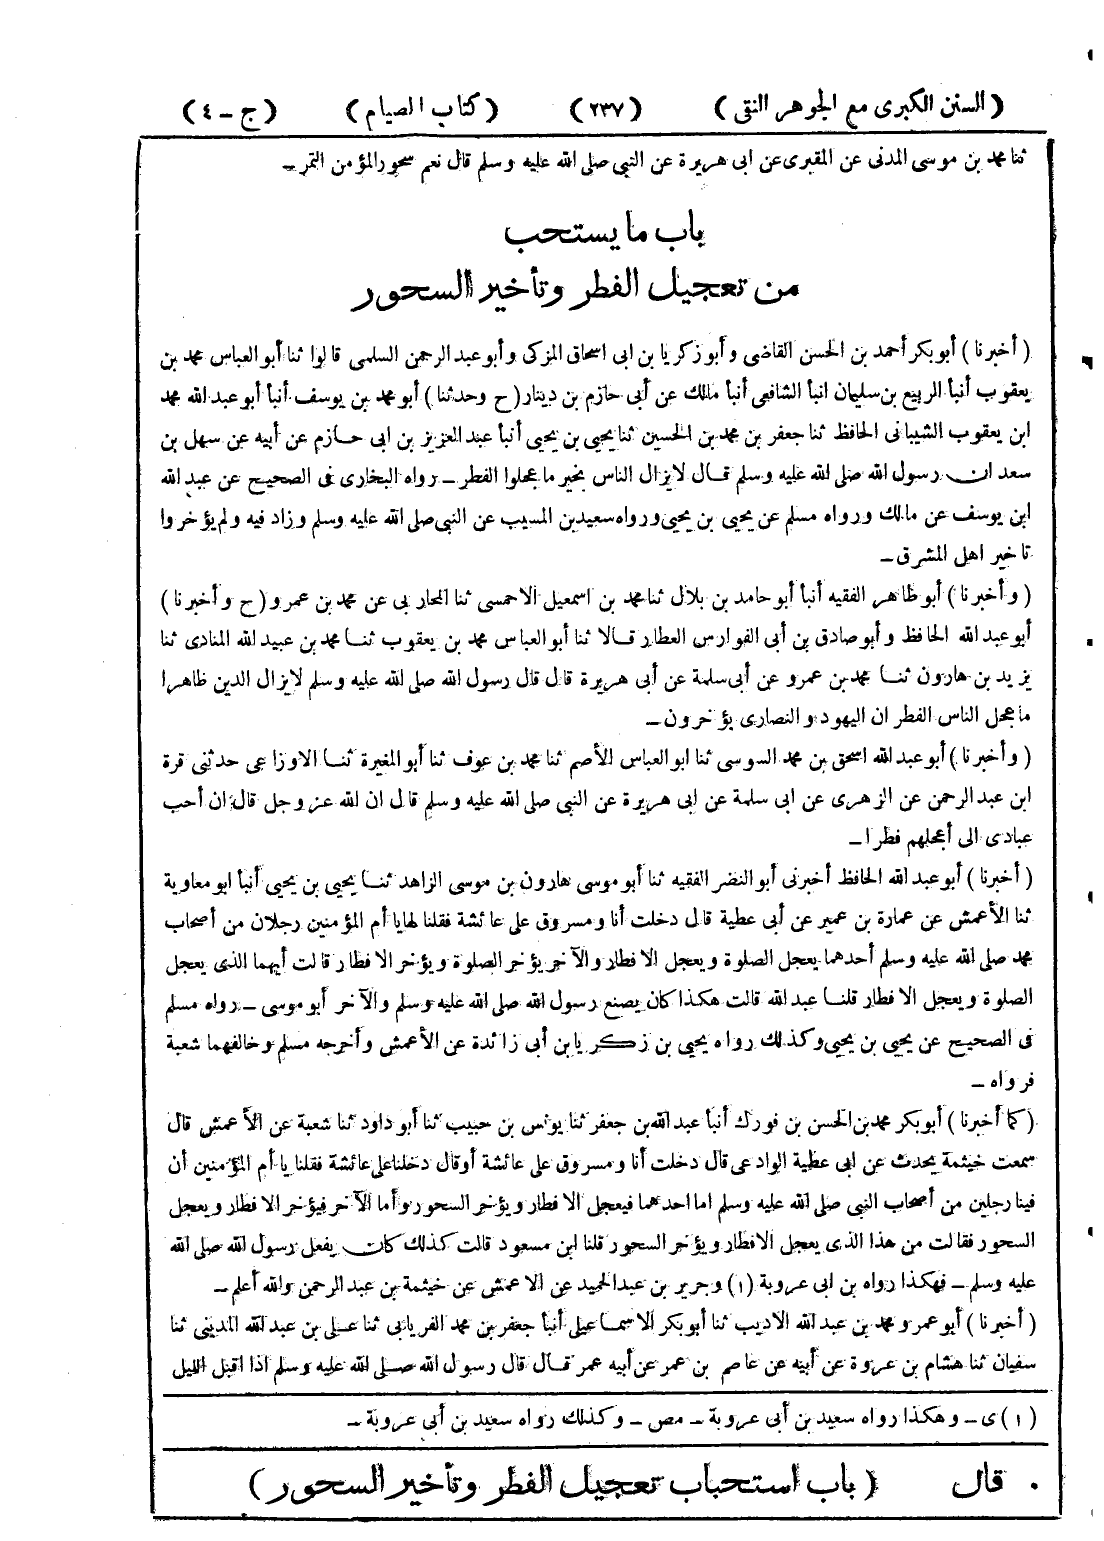 (السنن الكبرى مع الجوهر النقى) (٢٣٧) (كتاب الصيام) (ج - ٤)
ثنا محمد بن موسى المدنى عن المقبرى عن ابى هريرة عن النبى صلى الله عليه وسلم قال نعم سحور المؤمن التمر -
باب ما يستحب
من تعجيل الفطر وتأخير السحور
(أخبرنا) أبوبكر أحمد بن الحسن القاضى وأبو زكريا بن ابى اسحاق المزكى وأبو عبد الرحمن السلمى قالوا ثنا أبو العباس محمد بن
يعقوب أنبأ الربيع بن سليمان انبأ الشافعى أنبأ مالك عن أبى حازم بن دينار (ح وحدثنا) أبو محمد بن يوسف أنبأ أبو عبد الله محمد
ابن يعقوب الشيبانى الحافظ ثنا جعفر بن محمد بن الحسين ثنا يحيى بن يحيى أنبأ عبد العزيز بن ابى حازم عن أبيه عن سهل بن
سعد ان رسول الله صلى الله عليه وسلم قال لا يزال الناس بخير ما عجلوا الفطر - رواه البخارى فى الصحيح عن عبد الله
ابن يوسف عن مالك ورواه مسلم عن يحيى بن يحيى ورواه سعيد بن المسيب عن النبى صلى الله عليه وسلم وزاد فيه ولم يؤخروا
تاخير اهل المشرق -
(وأخبرنا) أبو طاهر الفقيه أنبأ أبو حامد بن بلال ثنا محمد بن اسمعيل الاحمسى ثنا المحاربى عن محمد بن عمرو (ح وأخبرنا)
أبو عبد الله الحافظ وأبو صادق بن أبى الفوارس العطار قالا ثنا أبو العباس محمد بن يعقوب ثنا محمد بن عبيد الله المنادى ثنا
يزيد بن هارون ثنا محمد بن عمرو عن أبى سلمة عن أبى هريرة قال قال رسول الله صلى الله عليه وسلم لا يزال الدين ظاهرا
ما عجل الناس الفطر ان اليهود والنصارى يؤخرون -
(وأخبرنا) أبو عبد الله اسحق بن محمد السوسى ثنا ابو العباس الأصم ثنا محمد بن عوف ثنا أبو المغيرة ثنا الاوزاعى حدثنى قرة
ابن عبد الرحمن عن الزهرى عن ابى سلمة عن ابى هريرة عن النبى صلى الله عليه وسلم قال ان الله عز وجل قال ان أحب
عبادى الى أعجلهم فطرا -
(أخبرنا) أبو عبد الله الحافظ أخبرنى أبو النضر الفقيه ثنا أبو موسى هارون بن موسى الزاهد ثنا يحيى بن يحيى أنبأ ابو معاوية
ثنا الأعمش عن عمارة بن عمير عن أبى عطية قال دخلت أنا ومسروق على عائشة فقلنا لها يا أم المؤمنين رجلان من أصحاب
محمد صلى الله عليه وسلم أحدهما يعجل الصلوة ويعجل الافطار والآخر يؤخر الصلوة ويؤخر الافطار قالت أيهما الذى يعجل
الصلوة ويعجل الافطار قلنا عبد الله قالت هكذا كان يصنع رسول الله صلى الله عليه وسلم والآخر أبو موسى - رواه مسلم
فى الصحيح عن يحيى بن يحيى وكذلك رواه يحيى بن زكريا بن أبى زائدة عن الأعمش وأخرجه مسلم وخالفهما شعبة
فرواه -
(كما أخبرنا) أبو بكر محمد بن الحسن بن فورك أنبأ عبد الله بن جعفر ثنا يونس بن حبيب ثنا أبو داود ثنا شعبة عن الأعمش قال
سمعت خيثمة يحدث عن ابى عطية الوادعى قال دخلت أنا ومسروق على عائشة أو قال دخلنا على عائشة فقلنا يا أم المؤمنين أن
فينا رجلين من أصحاب النبى صلى الله عليه وسلم اما احدهما فيعجل الافطار ويؤخر السحور وأما الآخر فيؤخر الافطار ويعجل
السحور فقالت من هذا الذى يعجل الافطار ويؤخر السحور قلنا ابن مسعود قالت كذلك كان يفعل رسول الله صلى الله
عليه وسلم - فهكذا رواه بن ابى عروبة (١) وجرير بن عبد الحميد عن الاعمش عن خيثمة بن عبد الرحمن والله أعلم -
(أخبرنا) أبو عمرو محمد بن عبد الله الاديب ثنا أبو بكر الاسماعيلى أنبأ جعفر بن محمد الفريابى ثنا على بن عبد الله المدينى ثنا
سفيان ثنا هشام بن عروة عن أبيه عن عاصم بن عمر عن أبيه عمر قال قال رسول الله صلى الله عليه وسلم اذا اقبل الليل
(١) ى - وهكذا رواه سعيد بن أبى عروبة - مص - وكذلك رواه سعيد بن أبى عروبة -
قال (باب استحباب تعجيل الفطر وتأخير السحور)